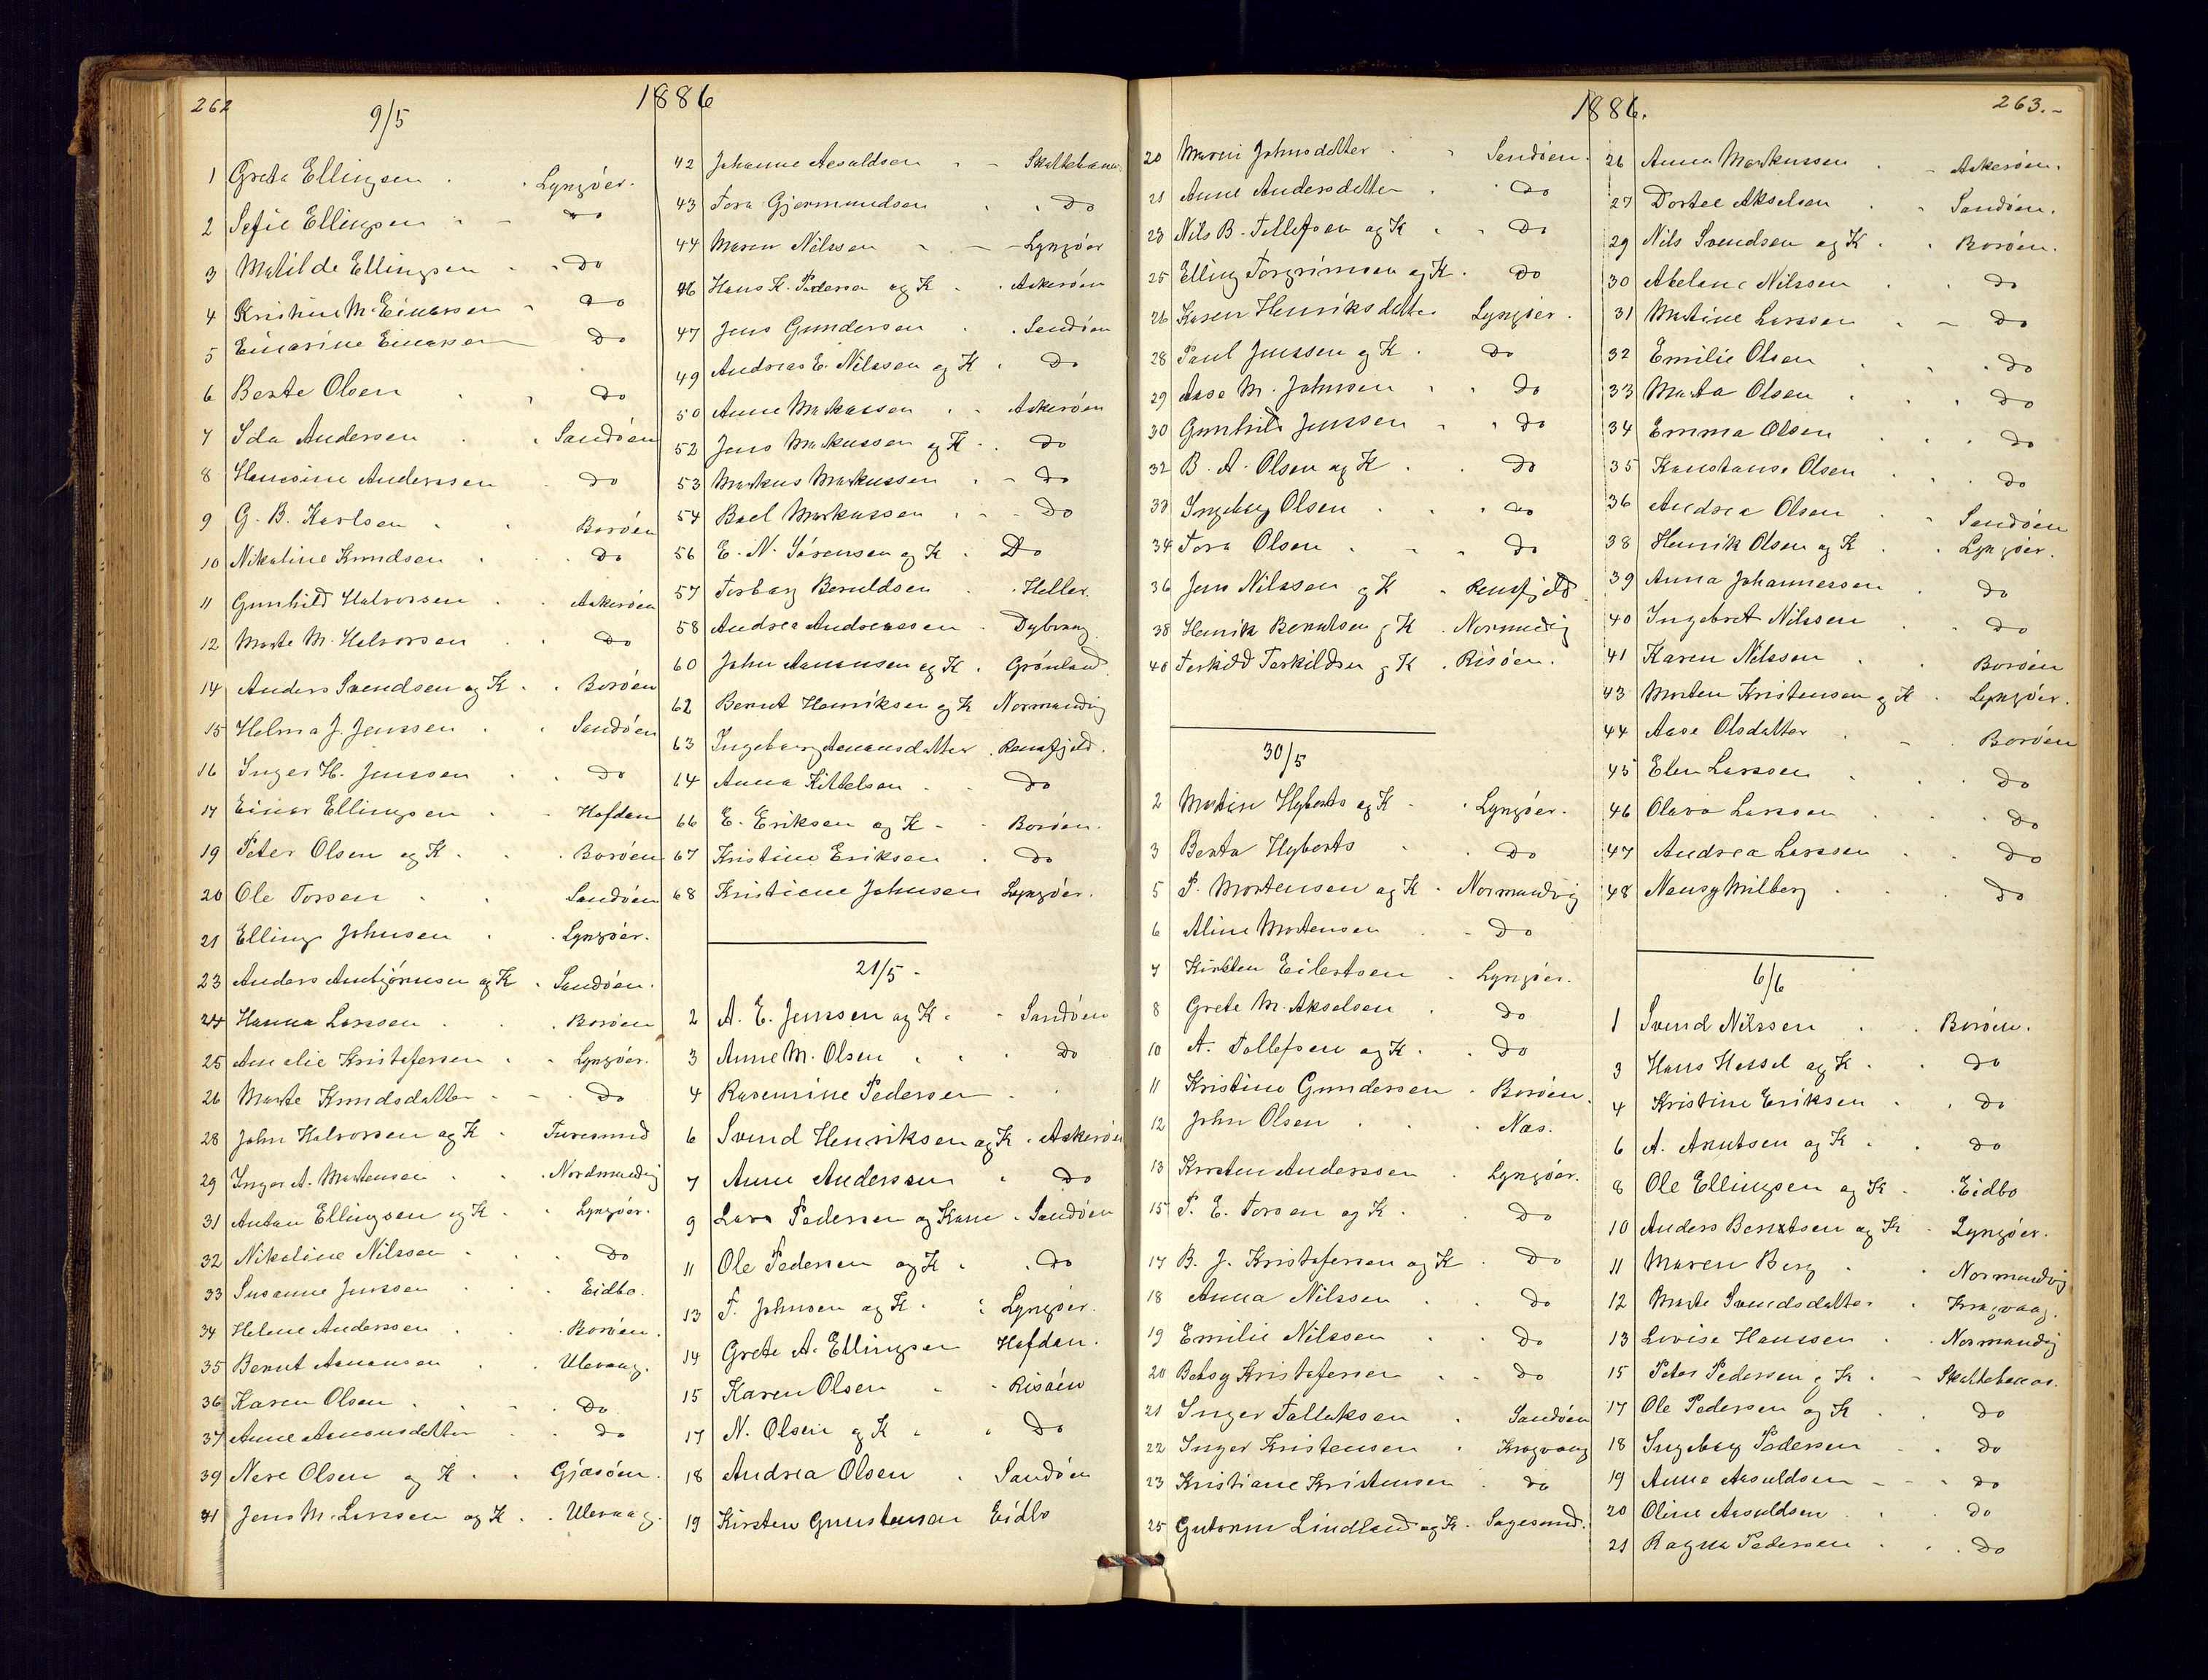 262
1886
9/5
1 Grete Ellingsen Lyngöer.
2 Sefie Ellingsen Do
3 Matilde Ellingsen Do
4 Kristine M. Einersen Do
5 Einarine Einersen Do
6 Berte Olsen Do
7 Ida Andersen Sandöen
8 Hansine Anderssen Do
9 G. B. Karlsen Boröen
10 Nikoline Knudsen Do
11 Gunhild Halvorsen Askeröen
12 Marte M. Halvorsen Do
14 Anders Svendsen og K. Boröen
15 Helma J. Jenssen Sandöen
16 Inger H. Jenssen Do
17 Einar Ellingsen Hofdan
19 Peter Olsen og K. Boröen
20 Ole Torsen Sandöen
21 Elling Johnsen Lyngöer.
23 Anders Anbjörnsen og K. Sandöen.
24 Hanna Larssen Boröen
25 Amelie Kristofersen Lyngöer.
26 Marte Knudsdatter Do
28 John Halvorsen og K. Furesund
29 Inger A. Mortensen Nordmandvig
31 Anton Ellingsen og K. Lyngöer.
32 Nikoline Nilssen Do
33 Susanne Jenssen Eidbo.
34 Helene Anderssen Boröen.
35 Bernt Amonsen Ulevaag.
36 Karen Olsen Do
37 Anne Amonsdatter Do
39 Nere Olsen og K. Gjæsöen.
41 Jens M. Larssen og K. Ulevaag.
42 Johanne Aasuldsen Skattebænes
43 Tora Gjermundsen Do
44 Maren Nilssen Lyngöer
46 Hans K. Pedersen og K Askeröen
47 Jens Gundersen Sandöen
49 Andreas E. Nilssen og K. Do
50 Anne Markussen Askeröen
52 Jens Markussen og K. Do
53 Markus Markussen Do
54 Boel Markussen Do
56 E. N. Sörensen og K. Do
57 Torborg Beruldsen Heller.
58 Andrea Andreassen Dybvaag
60 John Aanonsen og K. Grönland
62 Bernt Henriksen og K Normandvig
63 Ingeborg Amonsdatter Rensfjeld.
64 Anna Kittelsen Do
66 E. Eriksen og K. Boröen.
67 Kristine Eriksen Do
68 Kristiane Johnsen Lyngöer.
21/5
2 A. E. Jenssen og K. Sandöen
3 Anne M. Olsen Do
4 Rasmine Pedersen
6 Svend Henriksen og K. Askeröen
7 Anne Anderssen Do
9 Lars Pedersen og Kone Sandöen
11 Ole Pedersen og K. Do
13 T. Johnsen og K. Lyngöer.
14 Grete A. Ellingsen Hofdan.
15 Karen Olsen Risöen
17 N. Olsen og K. Do
18 Andrea Olsen Sandöen
19 Kirsten Gunstensen Eidbo
1886.
263.
20 Maren Johnsdatter Sandöen.
21 Anne Andersdatter Do
23 Nils B. Tellefsen og K Do
25 Elling Torgrimsen og K. Do
26 Karen Henriksdatter Lyngöer.
28 Paul Jenssen og K. Do
29 Aase M. Johnsen Do
30 Gunhild Jenssen Do
32 B. A. Olsen og K. Do
33 Ingeborg Olsen Do
34 Tora Olsen Do
36 Jens Nilssen og K Rensfjeld
38 Henrik Berntsen og K. Normandvig
40 Terkild Terkildsen og K. Risöen.
30/5
2 Martin Hyberts og K. Lyngöer.
3 Berta Hyberts Do
5 P. Mortensen og K. Normandvig
6 Aline Mortensen Do
7 Kirsten Eilertsen Lyngöer.
8 Grete M. Akselsen Do
10 A. Tollefsen og K. Do
11 Kristine Gundersen Boröen.
12 John Olsen Næs.
13 Kirsten Anderssen Lyngöer.
15 P. E. Torsen og K. Do
17 B. J. Kristofersen og K Do
18 Anna Nilssen Do
19 Emilie Nilssen Do
20 Betsy Kristofersen Do
21 Inger Tallaksen Sandöen
22 Inger Kristensen Kragvaag
23 Kristiane Kristensen do
25 Gutorm Lindland og K. Sagesund.
26 Anna Markussen Askeröen.
27 Dortee Akselsen Sandöen.
29 Nils Svendsen og K. Boröen.
30 Abelone Nilssen Do
31 Martine Larssen Do
32 Emilie Olsen Do
33 Marta Olsen Do
34 Emma Olsen Do
35 Konstanse Olsen Do
36 Andrea Olsen Sandöen
38 Henrik Olsen og K. Lyngöer.
39 Anna Johannessen Do
40 Ingebret Nilssen Do
41 Karen Nilssen Boröen
43 Morten Kristensen og K. Lyngöer.
44 Aase Olsdatter Boröen
45 Elen Larssen Do
46 Olava Larssen Do
47 Andrea Larssen Do
48 Nansy Milberg Do
6/6
1 Svend Nilssen Boröen.
3 Hans Hassel og K. Do
4 Kristine Eriksen Do
6 A. Anutsen og K. Do
8 Ole Ellingsen og K. Eidbo
10 Anders Berntsen og K Lyngöer.
11 Maren Berg Normandvig
12 Marte Svendsdatter Kragvaag.
13 Lovise Hanssen Normandvig
15 Peter Pedersen og K. Skattebænes.
17 Ole Pedersen og K. Do
18 Ingeborg Pedersen Do
19 Anne Aasuldsen Do
20 Oline Aasuldsen Do
21 Ragna Pedersen Do